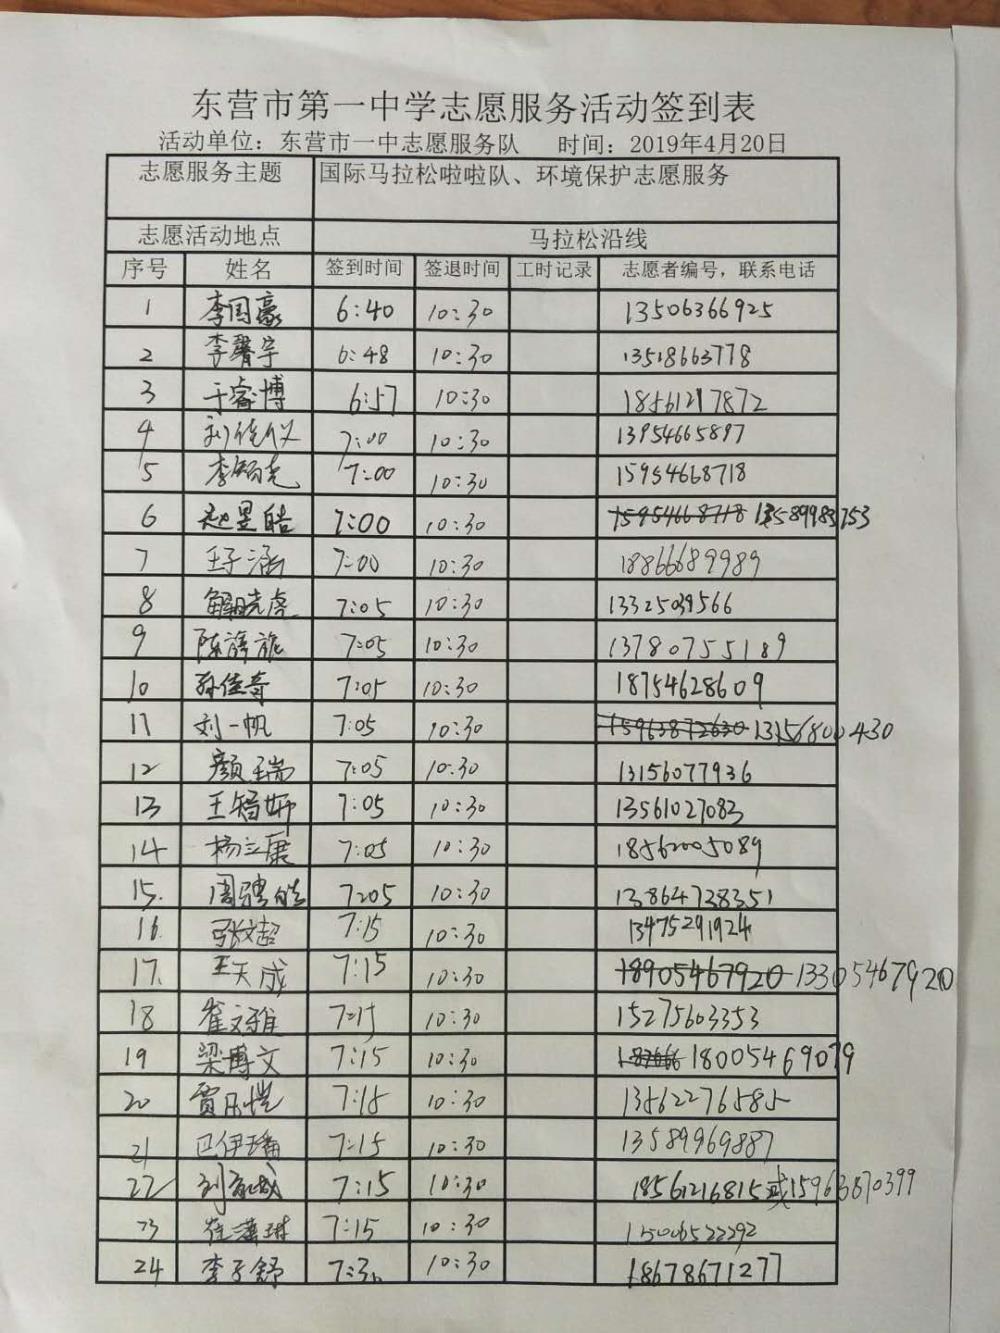 东营市第一中学志愿服务活动签到表
活动单位：东营市一中志愿服务队 时间：2019年4月20日
志愿服务主题 国际马拉松啦啦队、环境保护志愿服务
志愿活动地点 马拉松沿线
序号 姓名 签到时间 签退时间 工时记录 志愿者编号，联系电话
1 李国豪 6:40 10:30 13506366925
2 李馨宇 6:48 10:30 13518663778
3 于睿博 6:57 10:30 18561217872
4 刘佳仪 7:00 10:30 13954665897
5 7:00 10:30 15954668718
6 赵昱皓 7:00 10:30 15954668718 13589983753
7 王子涵 7:00 10:30 18866689989
8 解晓虎 7:05 10:30 13325039566
9 7:05 10:30 13780755189
10 孙佳奇 7:05 10:30 18754628609
11 刘一帆 7:05 10:30 15963872630 13156800430
12 颜瑞 7:05 10:30 13156077936
13 王智妍 7:05 10:30 13561027083
14 杨立康 7:05 10:30 18562005089
15. 周骋皓 7:05 10:30 13864738351
16. 张文超 7:15 10:30 13475291924
17. 王天成 7:15 10:30 18905467920 13305467920
18 崔文雅 7:15 10:30 15275603353
19 梁博文 7:15 10:30 187666 18005469079
20 7:15 10:30 13562276585
21 7:15 10:30 13589969887
22 7:15 10:30 18561216815或15963870399
23 崔潇琳 7:15 10:30 15006522292
24 李子舒 7:30 10:30 18678671277